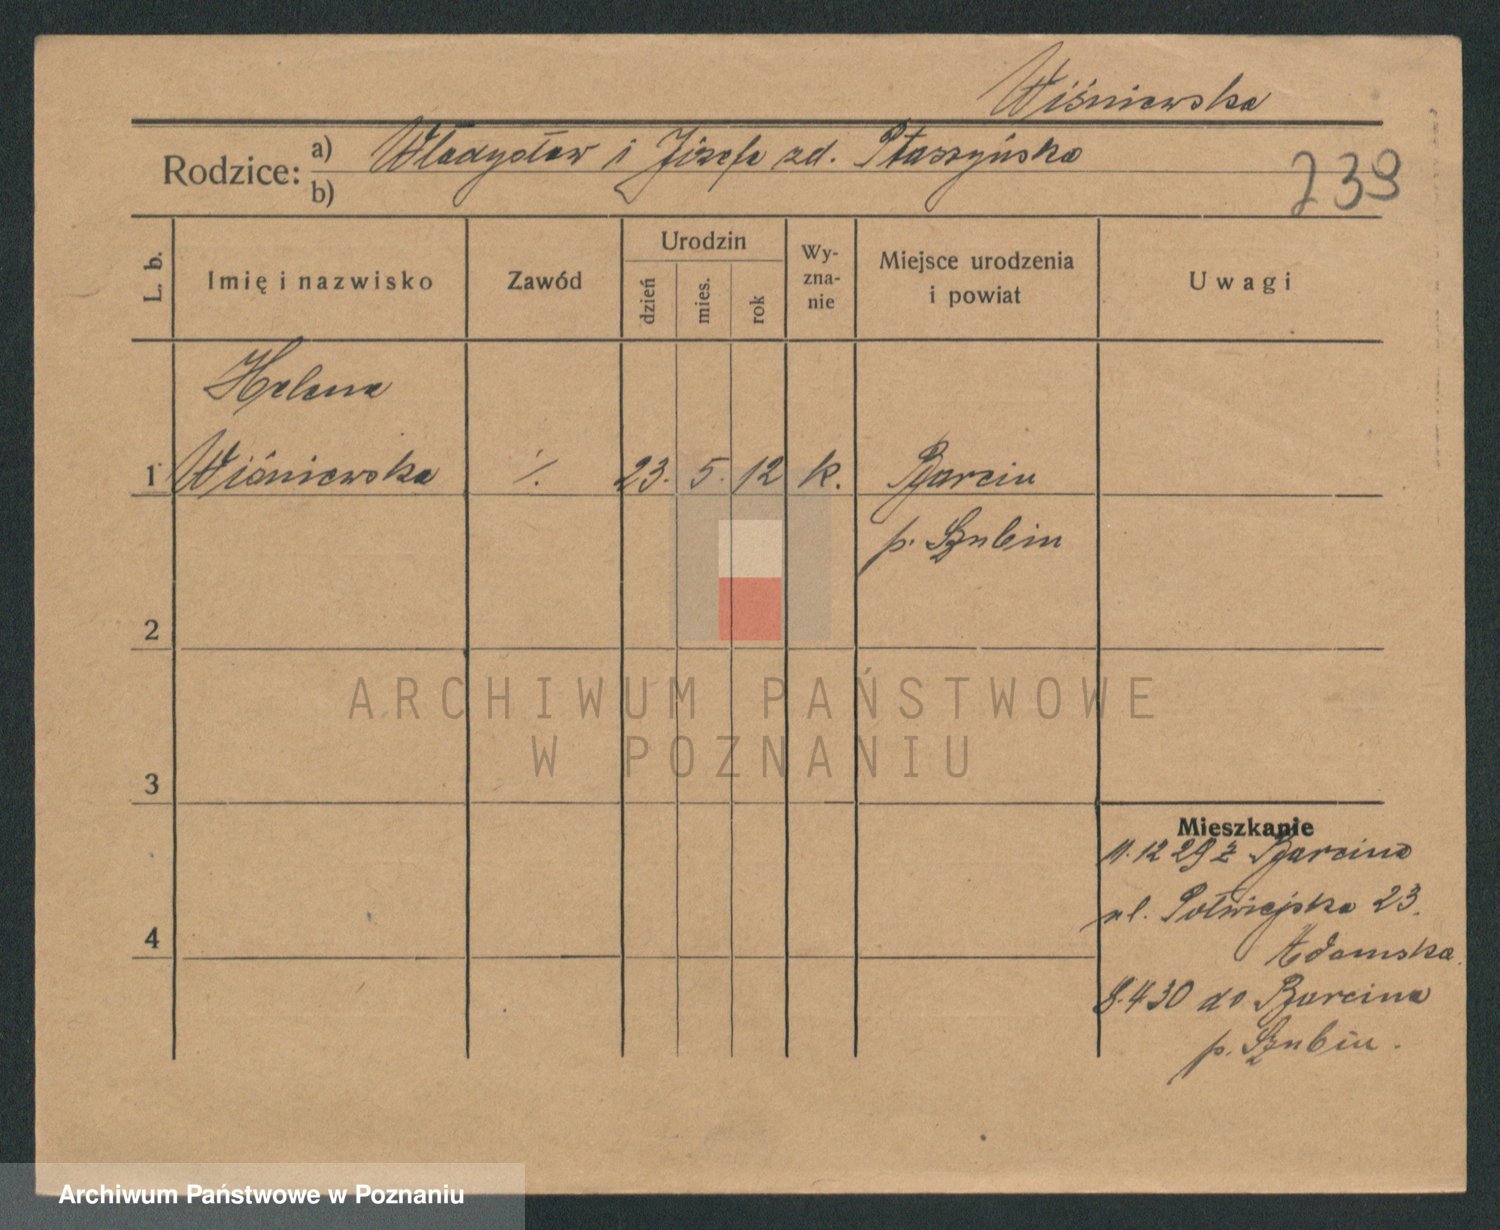 Wiśniewska
Rodzice: a) Władysław i Józefa zd. Ptaszyńska
b)
239
L. b.
Imię i nazwisko
Zawód
Urodzin
dzień
mies.
rok
Wy-
zna-
nie
Miejsce urodzenia
i powiat
Uwagi
Helena
1 Wiśniewska ·/. 23. 5. 12 k. Barcin
p. Szubin
2
3
4
Mieszkanie
11.12 29 z Barcina
ul. Półwiejska 23.
Adamska.
8.4 30 do Barcina
p. Szubin.
ARCHIWUM PAŃSTWOWE
W POZNANIU
Archiwum Państwowe w Poznaniu